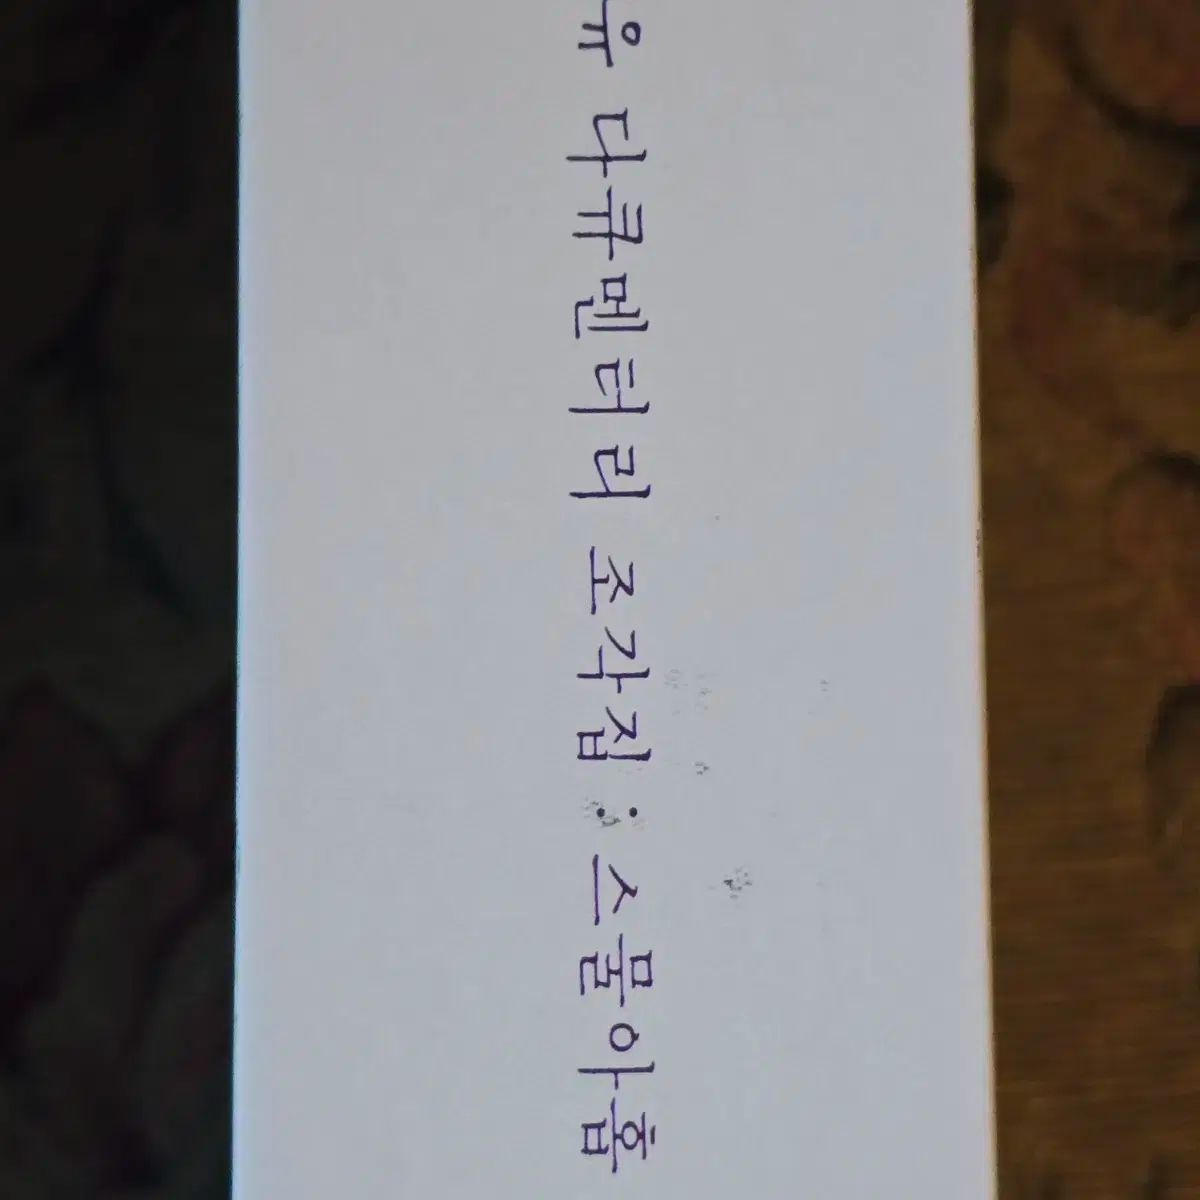 유 다큐멘터리 조각집 : 스물아홉